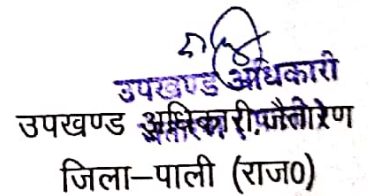 उपखण्ड अधिकारी
उपखण्ड अधिकारी, जैतारण
जिला–पाली (राज0)